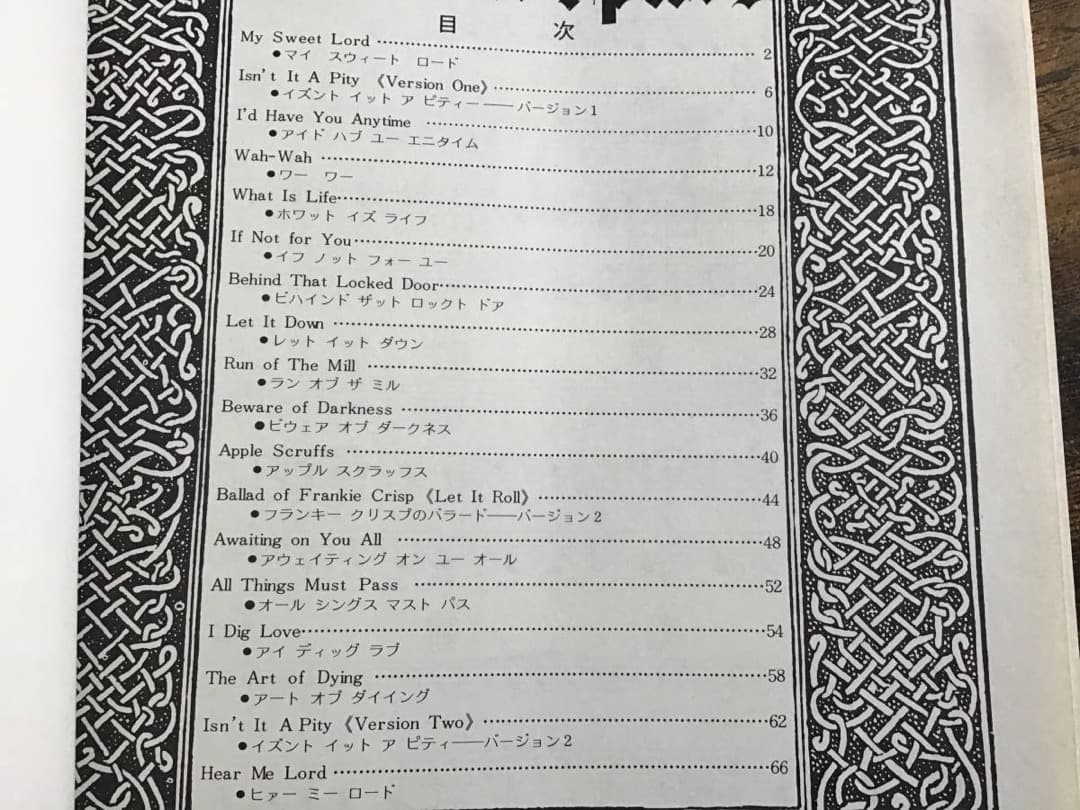 目 次
My Sweet Lord ……………………………………………… 2
●マイ スウィート ロード
Isn't It A Pity 《Version One》……………………………… 6
●イズント イット ア ピティー――バージョン1
I'd Have You Anytime ………………………………………10
●アイド ハブ ユー エニタイム
Wah-Wah ……………………………………………………12
●ワー ワー
What Is Life…………………………………………………18
●ホワット イズ ライフ
If Not for You………………………………………………20
●イフ ノット フォー ユー
Behind That Locked Door……………………………………24
●ビハインド ザット ロックト ドア
Let It Down …………………………………………………28
●レット イット ダウン
Run of The Mill ……………………………………………32
●ラン オブ ザ ミル
Beware of Darkness …………………………………………36
●ビウェア オブ ダークネス
Apple Scruffs ………………………………………………40
●アップル スクラッフス
Ballad of Frankie Crisp《Let It Roll》………………………44
●フランキー クリスプのバラード――バージョン2
Awaiting on You All …………………………………………48
●アウェイティング オン ユー オール
All Things Must Pass ………………………………………52
●オール シングス マスト パス
I Dig Love……………………………………………………54
●アイ ディッグ ラブ
The Art of Dying ……………………………………………58
●アート オブ ダイイング
Isn't It A Pity《Version Two》………………………………62
●イズント イット ア ピティ――バージョン2
Hear Me Lord ………………………………………………66
●ヒァー ミー ロード